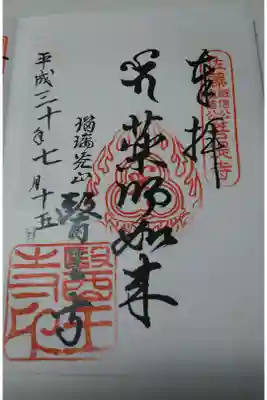 奉拝
薬師如来
瑠璃光山
醫王寺
平成三十年七月十五日
醫王寺印